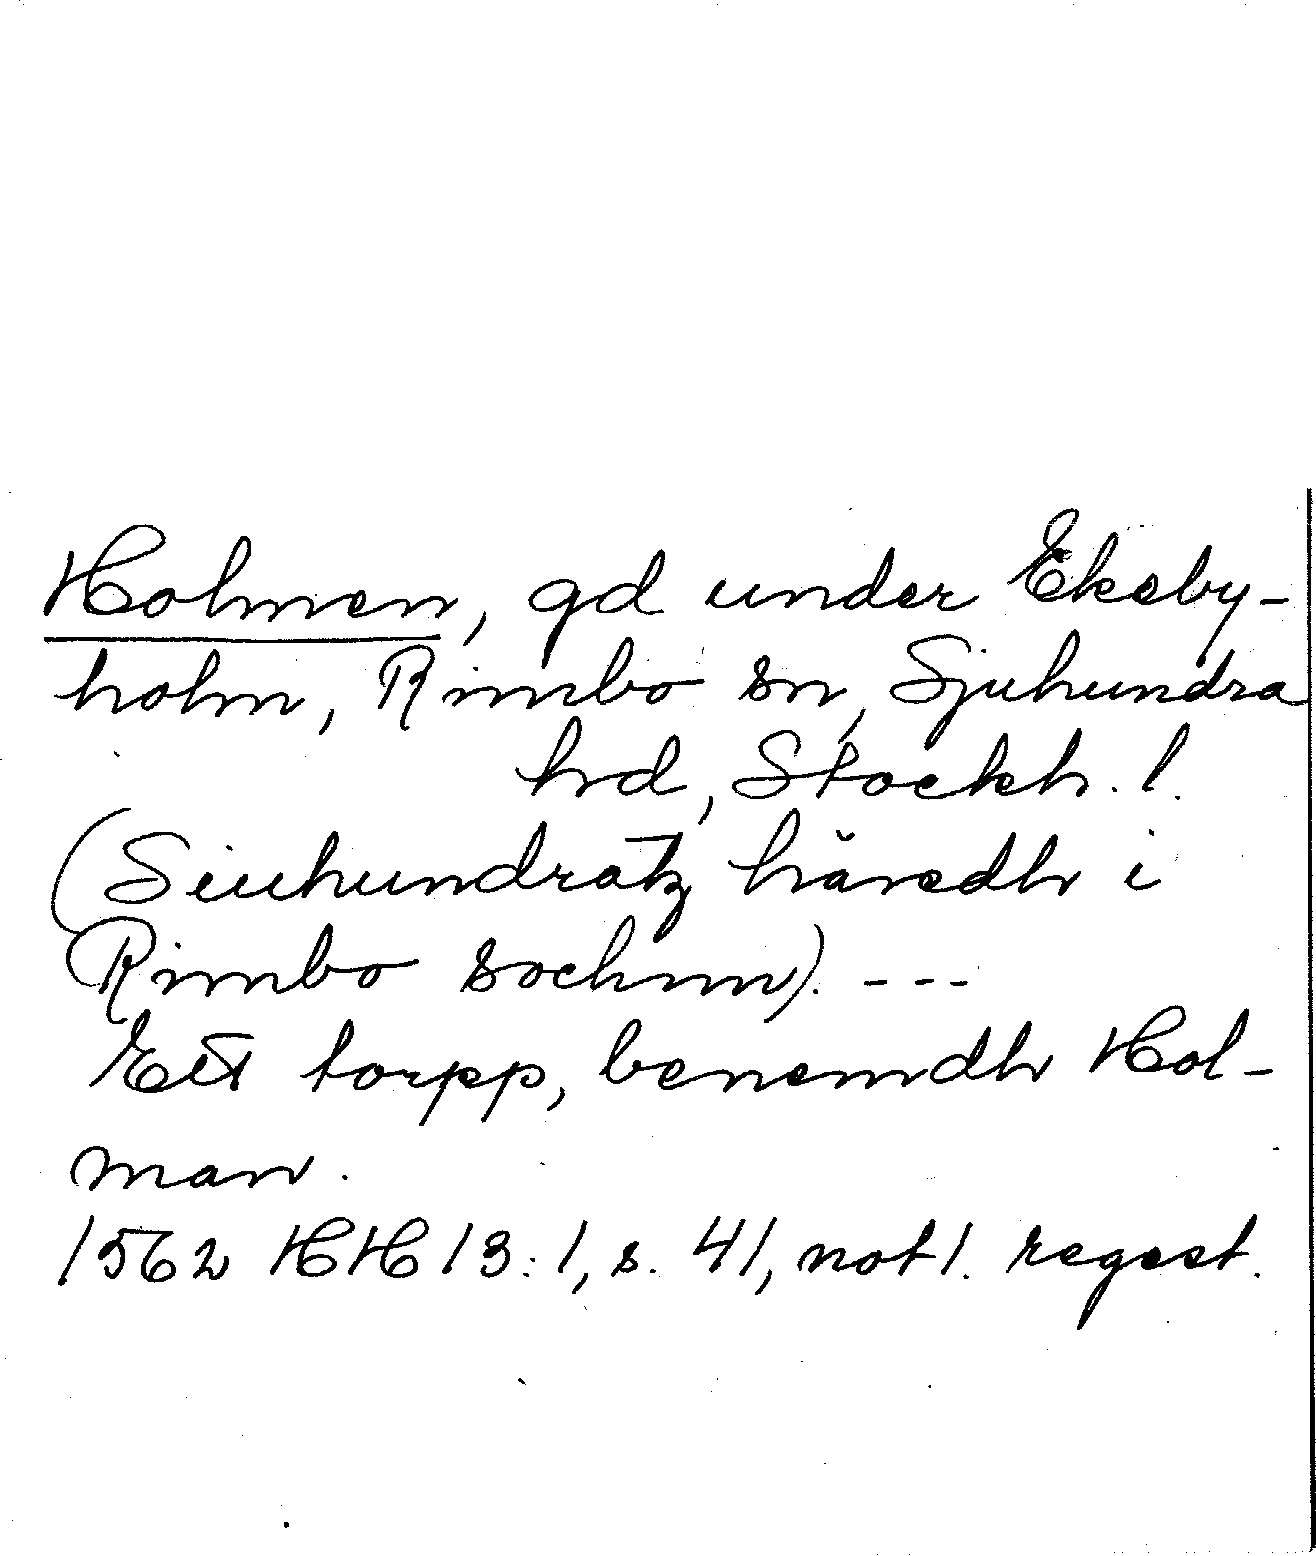 Holmen, gd under Ekeby-
holm, Rimbo sn, Sjuhundra
hrd, Stockh. l.
(Siuhundratz häredh i
Rimbo sochnn). ---
Eët torpp, benemdh Hol-
man.
1562 HH 13:1, s. 41, not 1. regest.